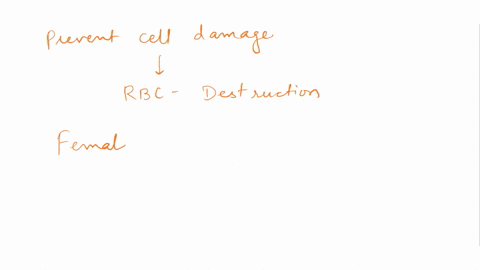 Prevent cell damage
↓
RBC - Destruction
Femal